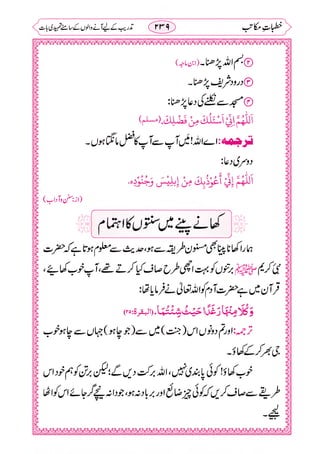 خطباتِ مکاتب ۲۳۹ تدریب کے لیے آنے والوں کے سامنے تمہیدی بات
② بسم اللہ پڑھنا۔ (ابن ماجہ)
③ درود شریف پڑھنا۔
④ مسجد سے نکلنے کی دعا پڑھنا:
اَللّٰهُمَّ اِنِّيْ اَسْئَلُكَ مِنْ فَضْلِكَ. (مسلم)
ترجمہ: اے اللہ! میں آپ سے آپ کا فضل مانگتا ہوں۔
دوسری دعا:
اَللّٰهُمَّ اِنِّيْ اَعُوْذُبِكَ مِنْ اِبْلِيْسَ وَجُنُوْدِهٖ.
(از: سنن وآداب)
کھانے پینے میں سنتوں کا اہتمام
ہمارا کھانا پینا بھی مسنون طریقے سے ہو، حدیث سے معلوم ہوتا ہے کہ حضرت
نبیٔ کریم ﷺ برتنوں کو تہہ تک اچھی طرح صاف کیا کرتے تھے، آپ خوب کھائیے،
قرآن میں ہے حضرت آدم کو اللہ تعالیٰ نے فرمایا تھا:
وَكُلَا مِنْهَا رَغَدًا حَيْثُ شِئْتُمَا. (البقرۃ: ۳۵)
ترجمہ: اور تم دونوں اس (جنت) میں سے (جو چاہو) جہاں سے چاہو خوب
جی بھر کر کھاؤ۔
خوب کھاؤ! کوئی پابندی نہیں، اللہ برکت دیں گے؛ لیکن برتن کو ہم خود اس
طریقے سے صاف کریں کہ کوئی چیز ضائع اور برباد نہ ہو، دانہ جو نیچے گر جائے اس کو اٹھا
لیجیے۔